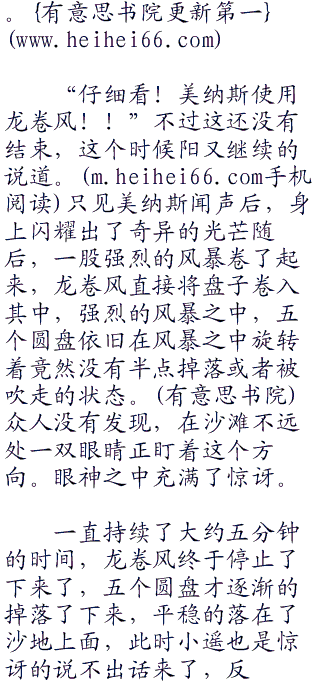 。{有意思书院更新第一}
(www.heihei66.com)
“仔细看！美纳斯使用
龙卷风！！”不过这还没有
结束，这个时候阳又继续的
说道。(m.heihei66.com手机
阅读)只见美纳斯闻声后，身
上闪耀出了奇异的光芒随
后，一股强烈的风暴卷了起
来，龙卷风直接将盘子卷入
其中，强烈的风暴之中，五
个圆盘依旧在风暴之中旋转
着竟然没有半点掉落或者被
吹走的状态。(有意思书院)
众人没有发现，在沙滩不远
处一双眼睛正盯着这个方
向。眼神之中充满了惊讶。
一直持续了大约五分钟
的时间，龙卷风终于停止了
下来了，五个圆盘才逐渐的
掉落了下来，平稳的落在了
沙地上面，此时小遥也是惊
讶的说不出话来了，反